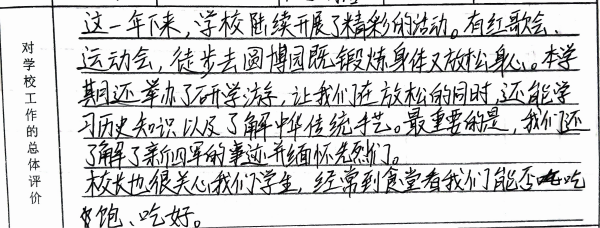 对学校工作的总体评价
这一年下来，学校陆续开展了精彩的活动。有红歌会、
运动会，徒步去园博园既锻炼身体又放松身心。本学
期还举办了研学游，让我们在放松的同时，还能学
习历史知识以及了解中华传统手艺。最重要的是，我们还
了解了新四军的事迹并缅怀先烈们。
校长也很关心我们学生，经常到食堂看我们能否吃
饱、吃好。